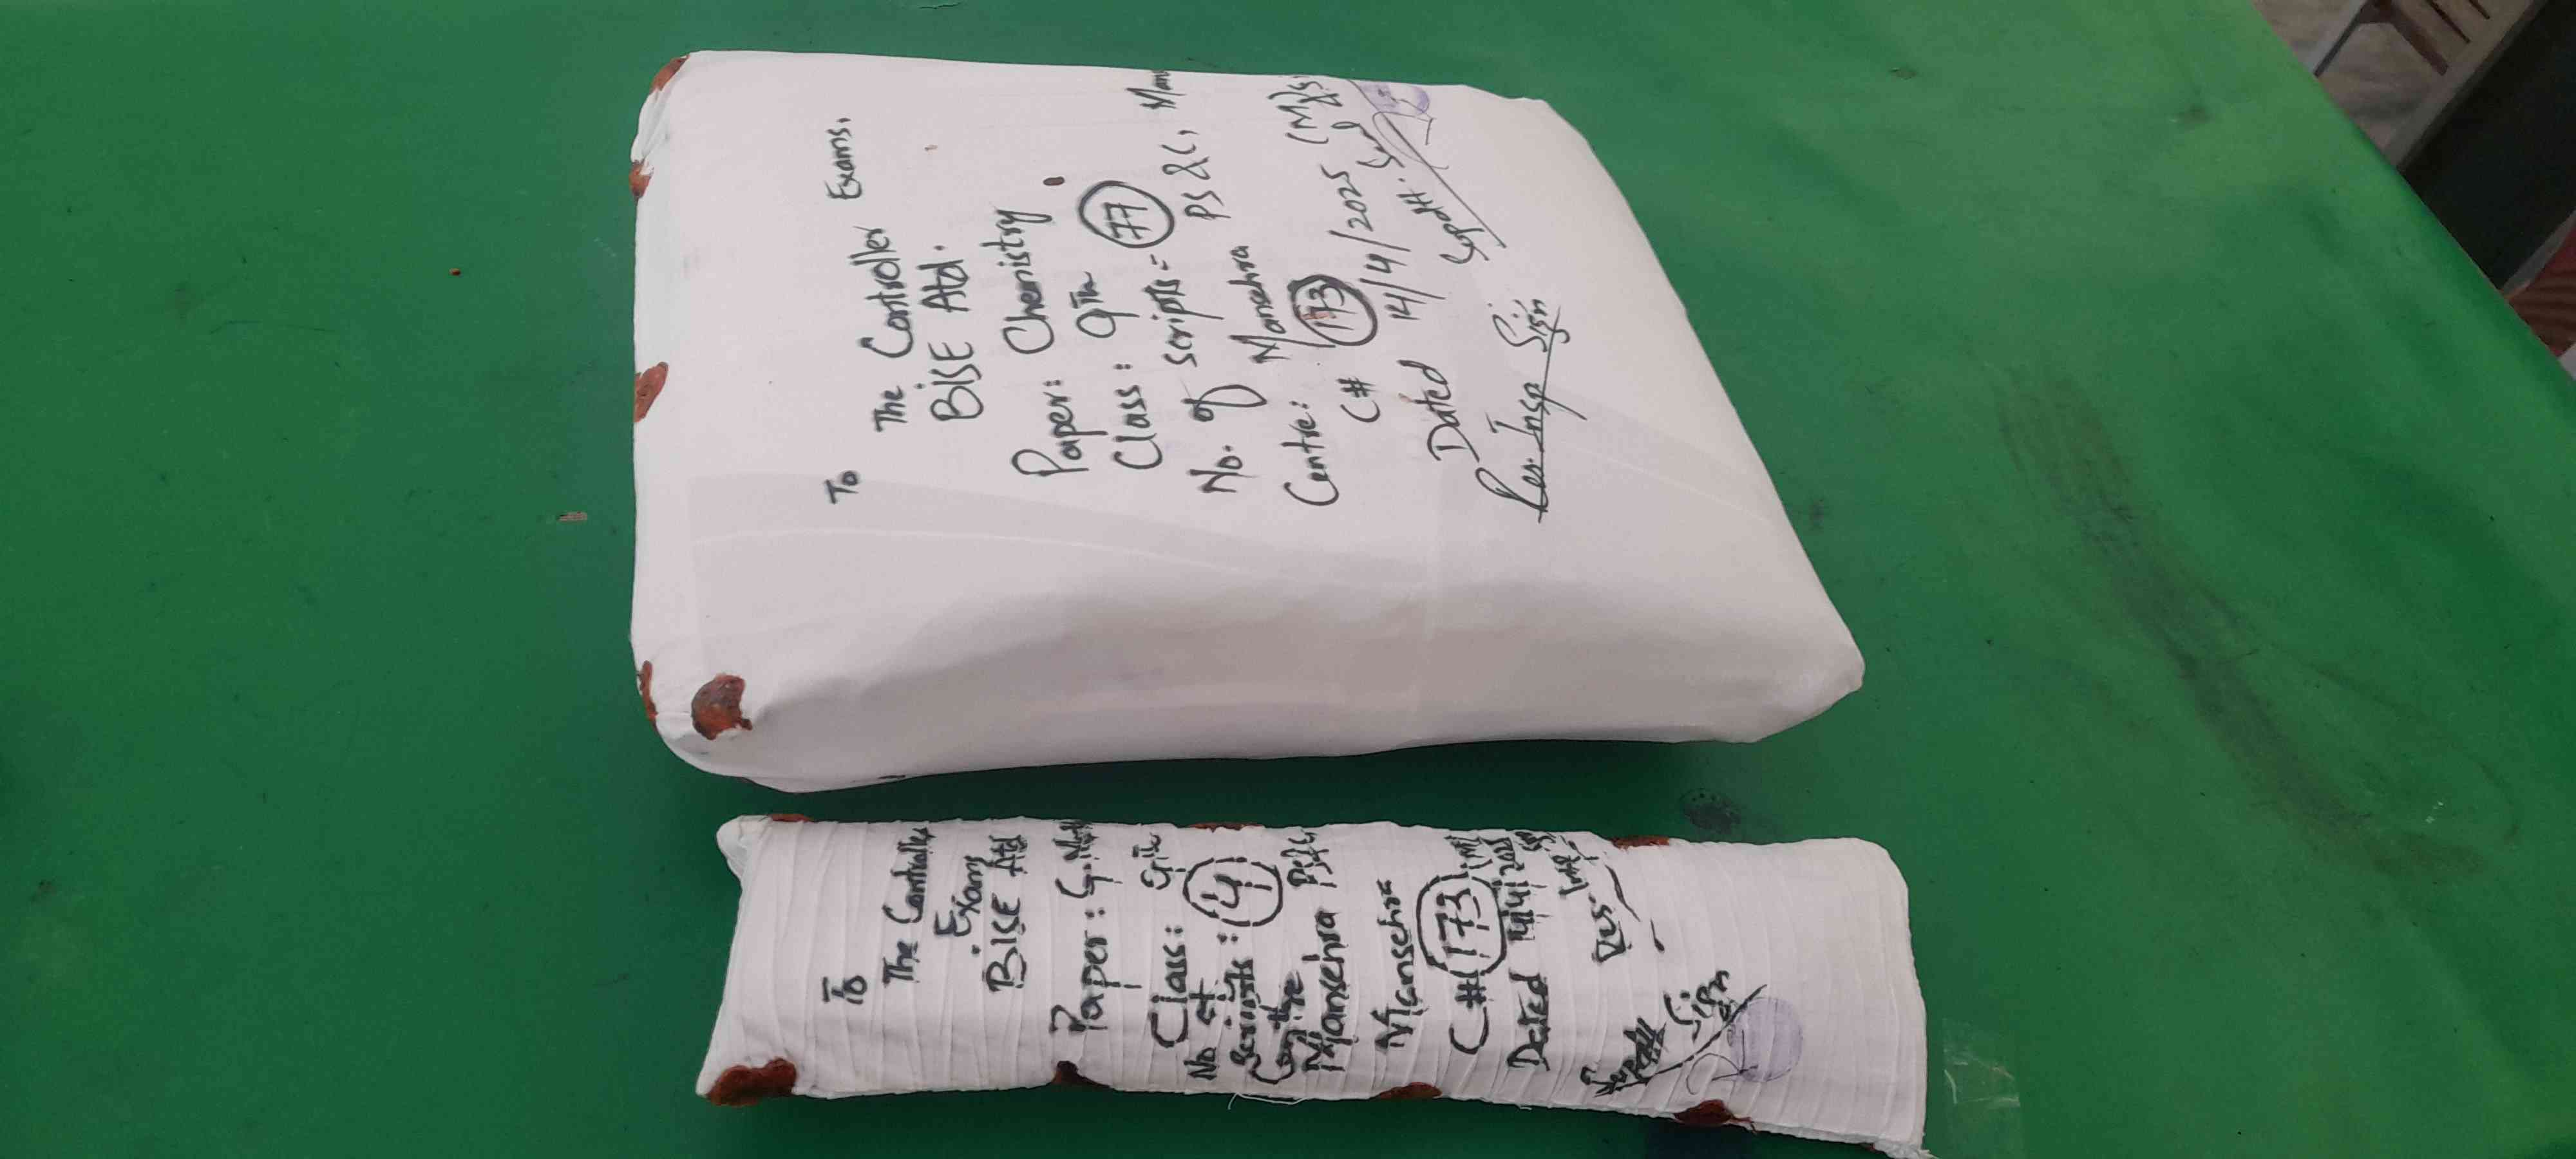 To
The Controller Exams.
BISE Atd.
Paper: Chemistry
Class: 9th
No. of scripts = 77
Centre: Mansehra PS & C, Man
C# 173 (M)
Dated 14/4/2025
Res. Insp Sign
Supdtt.
To
The Controller
Exam
BISE Atd
Paper: G.Math
Class: 9th
No of
Scripts: 4
Centre
Mansehra PS&C,
Mansehra
C# 173 (M)
Dated 14/4/2025
Res. Insp
Sign